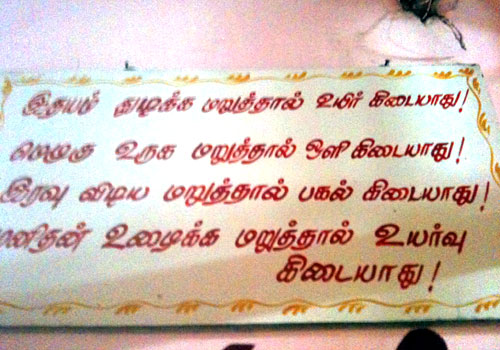 இதயம் துடிக்க மறுத்தால் உயிர் கிடையாது!
மெழுகு உருக மறுத்தால் ஒளி கிடையாது!
இரவு விடிய மறுத்தால் பகல் கிடையாது!
மனிதன் உழைக்க மறுத்தால் உயர்வு
கிடையாது!